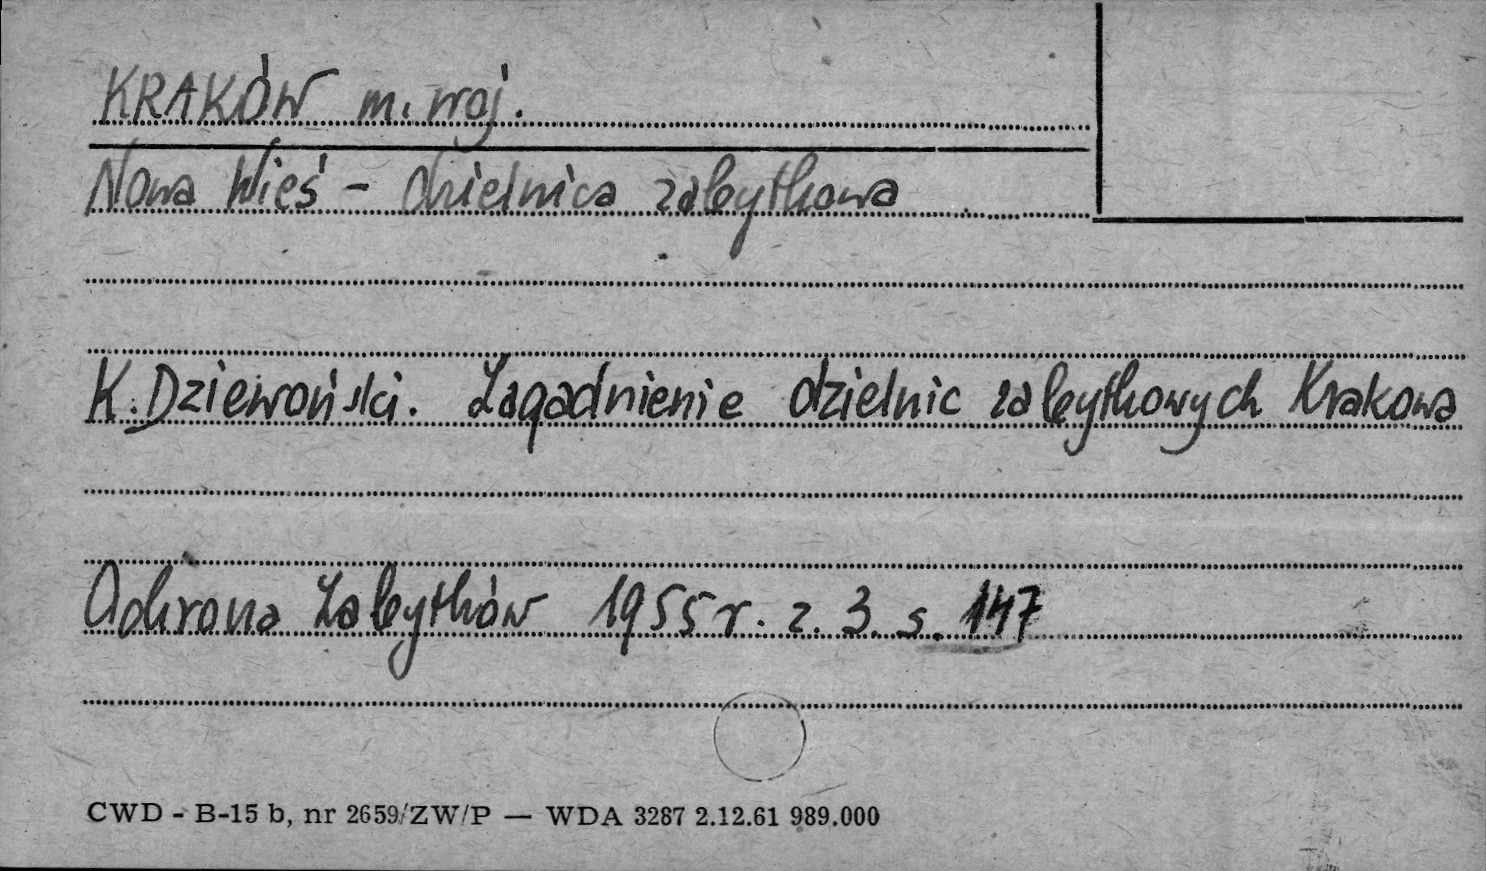 KRAKÓW m. woj.
Nowa Wieś - dzielnica zabytkowa
K. Dziewoński. Zagadnienie dzielnic zabytkowych Krakowa
Ochrona Zabytków 1955 r. z. 3. s. 147
CWD - B-15 b, nr 2659/ZW/P — WDA 3287 2.12.61 989.000